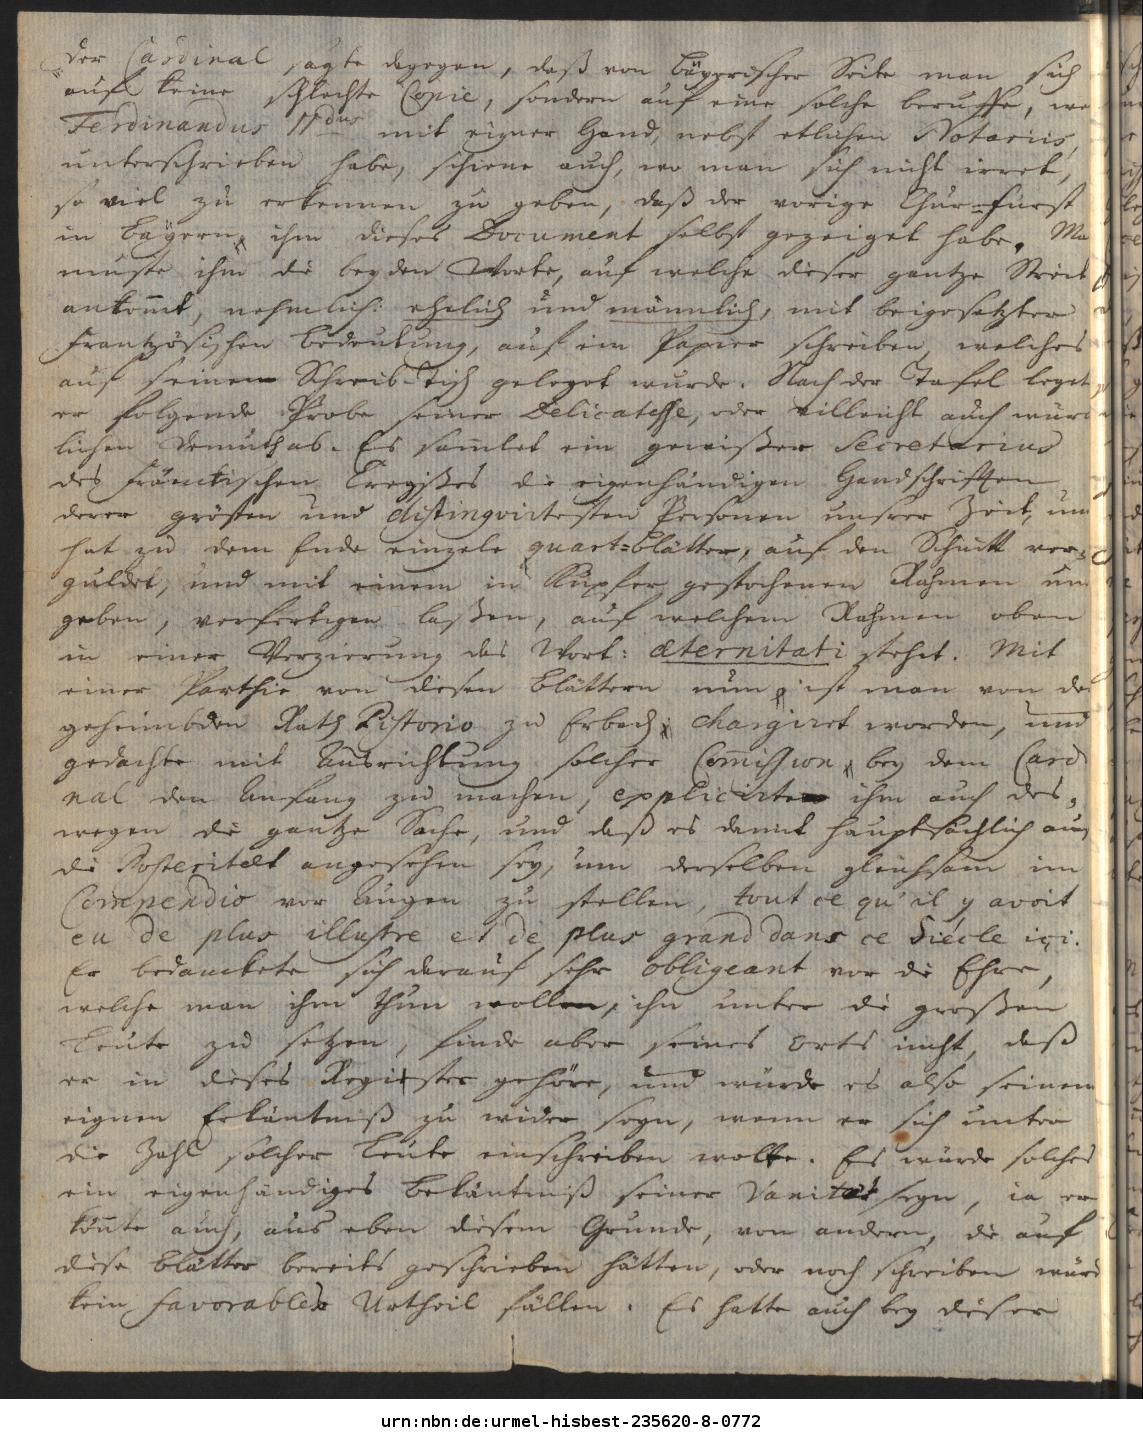 der Cardinal sagte dagegen, daß von Bäyerischer Seite man sich
auf keine schlechte Copie, sondern auf eine solche beruffe, we
Ferdinandus IIdus mit eigner Hand, nebst etlichen Notariis,
unterschrieben habe, schiene auch, wo man sich nicht irret,
so viel zu erkennen zu geben, daß der vorige Chur-Fürst
in Bäyern, ihm dieses Document selbst gezeiget habe. Ma
muste ihm die beyden Worte, auf welche dieser gantze Streit
ankom̄t, nehmlich: ehelich und männlich, mit beigesetzter
Frantzösischen Bedeutung, auf ein Papier schreiben, welches
auf seinen Schreib-Tisch geleget wurde. Nach der Tafel legete
er folgende Probe seiner Delicatesse, oder villeicht auch würc
lichen Demuth ab. Es sam̄let ein gewißer Secretarius
des Fränckischen Creyßes die eigenhändigen Handschrifften
derer grösten und distingvirtesten Personen unsrer Zeit, un
hat zu dem Ende einzele quart=Blätter, auf den Schnitt ver=
guldet, und mit einem in Kupfer gestochenen Rahmen um
geben, verfertigen laßen, auf welchem Rahmen oben
in einer Verzierung das Wort: æternitati stehet. Mit
einer Parthie von diesen Blättern nun, ist man von de
geheimbden Rath Pistorio zu Erbach, chargiret worden, und
gedachte mit Ausrichtung solcher Com̄ission, bey dem Card
nal den Anfang zu machen, explicirte ihm auch des=
wegen die gantze Sache, und daß es damit hauptsächlich auf
die Posteritæt angesehen sey, um derselben gleichsam im
Compendio vor Augen zu stellen, tout ce qu'il y avoit
eu de plus illustre et de plus grand dans ce Siécle içi.
Er bedanckete sich darauf sehr obligeant vor die Ehre,
welche man ihm thun wollen, ihn unter die großen
Leute zu setzen, finde aber seines Orts nicht, daß
er in dieses Register gehöre, und würde es also seinem
eignen Erkäntniß zu wider seyn, wenn er sich unter
die Zahl solcher Leute einschreiben wolte. Es würde solches
ein eigenhändiges Bekäntniß seiner Vanitæt seyn, ia er
kön̄te auch, aus eben diesem Grunde, von andern, die auf
diese Blätter bereits geschrieben hätten, oder noch schreiben würd
kein favorables Urtheil fällen. Es hatte auch bey dieser
urn:nbn:de:urmel-hisbest-235620-8-0772